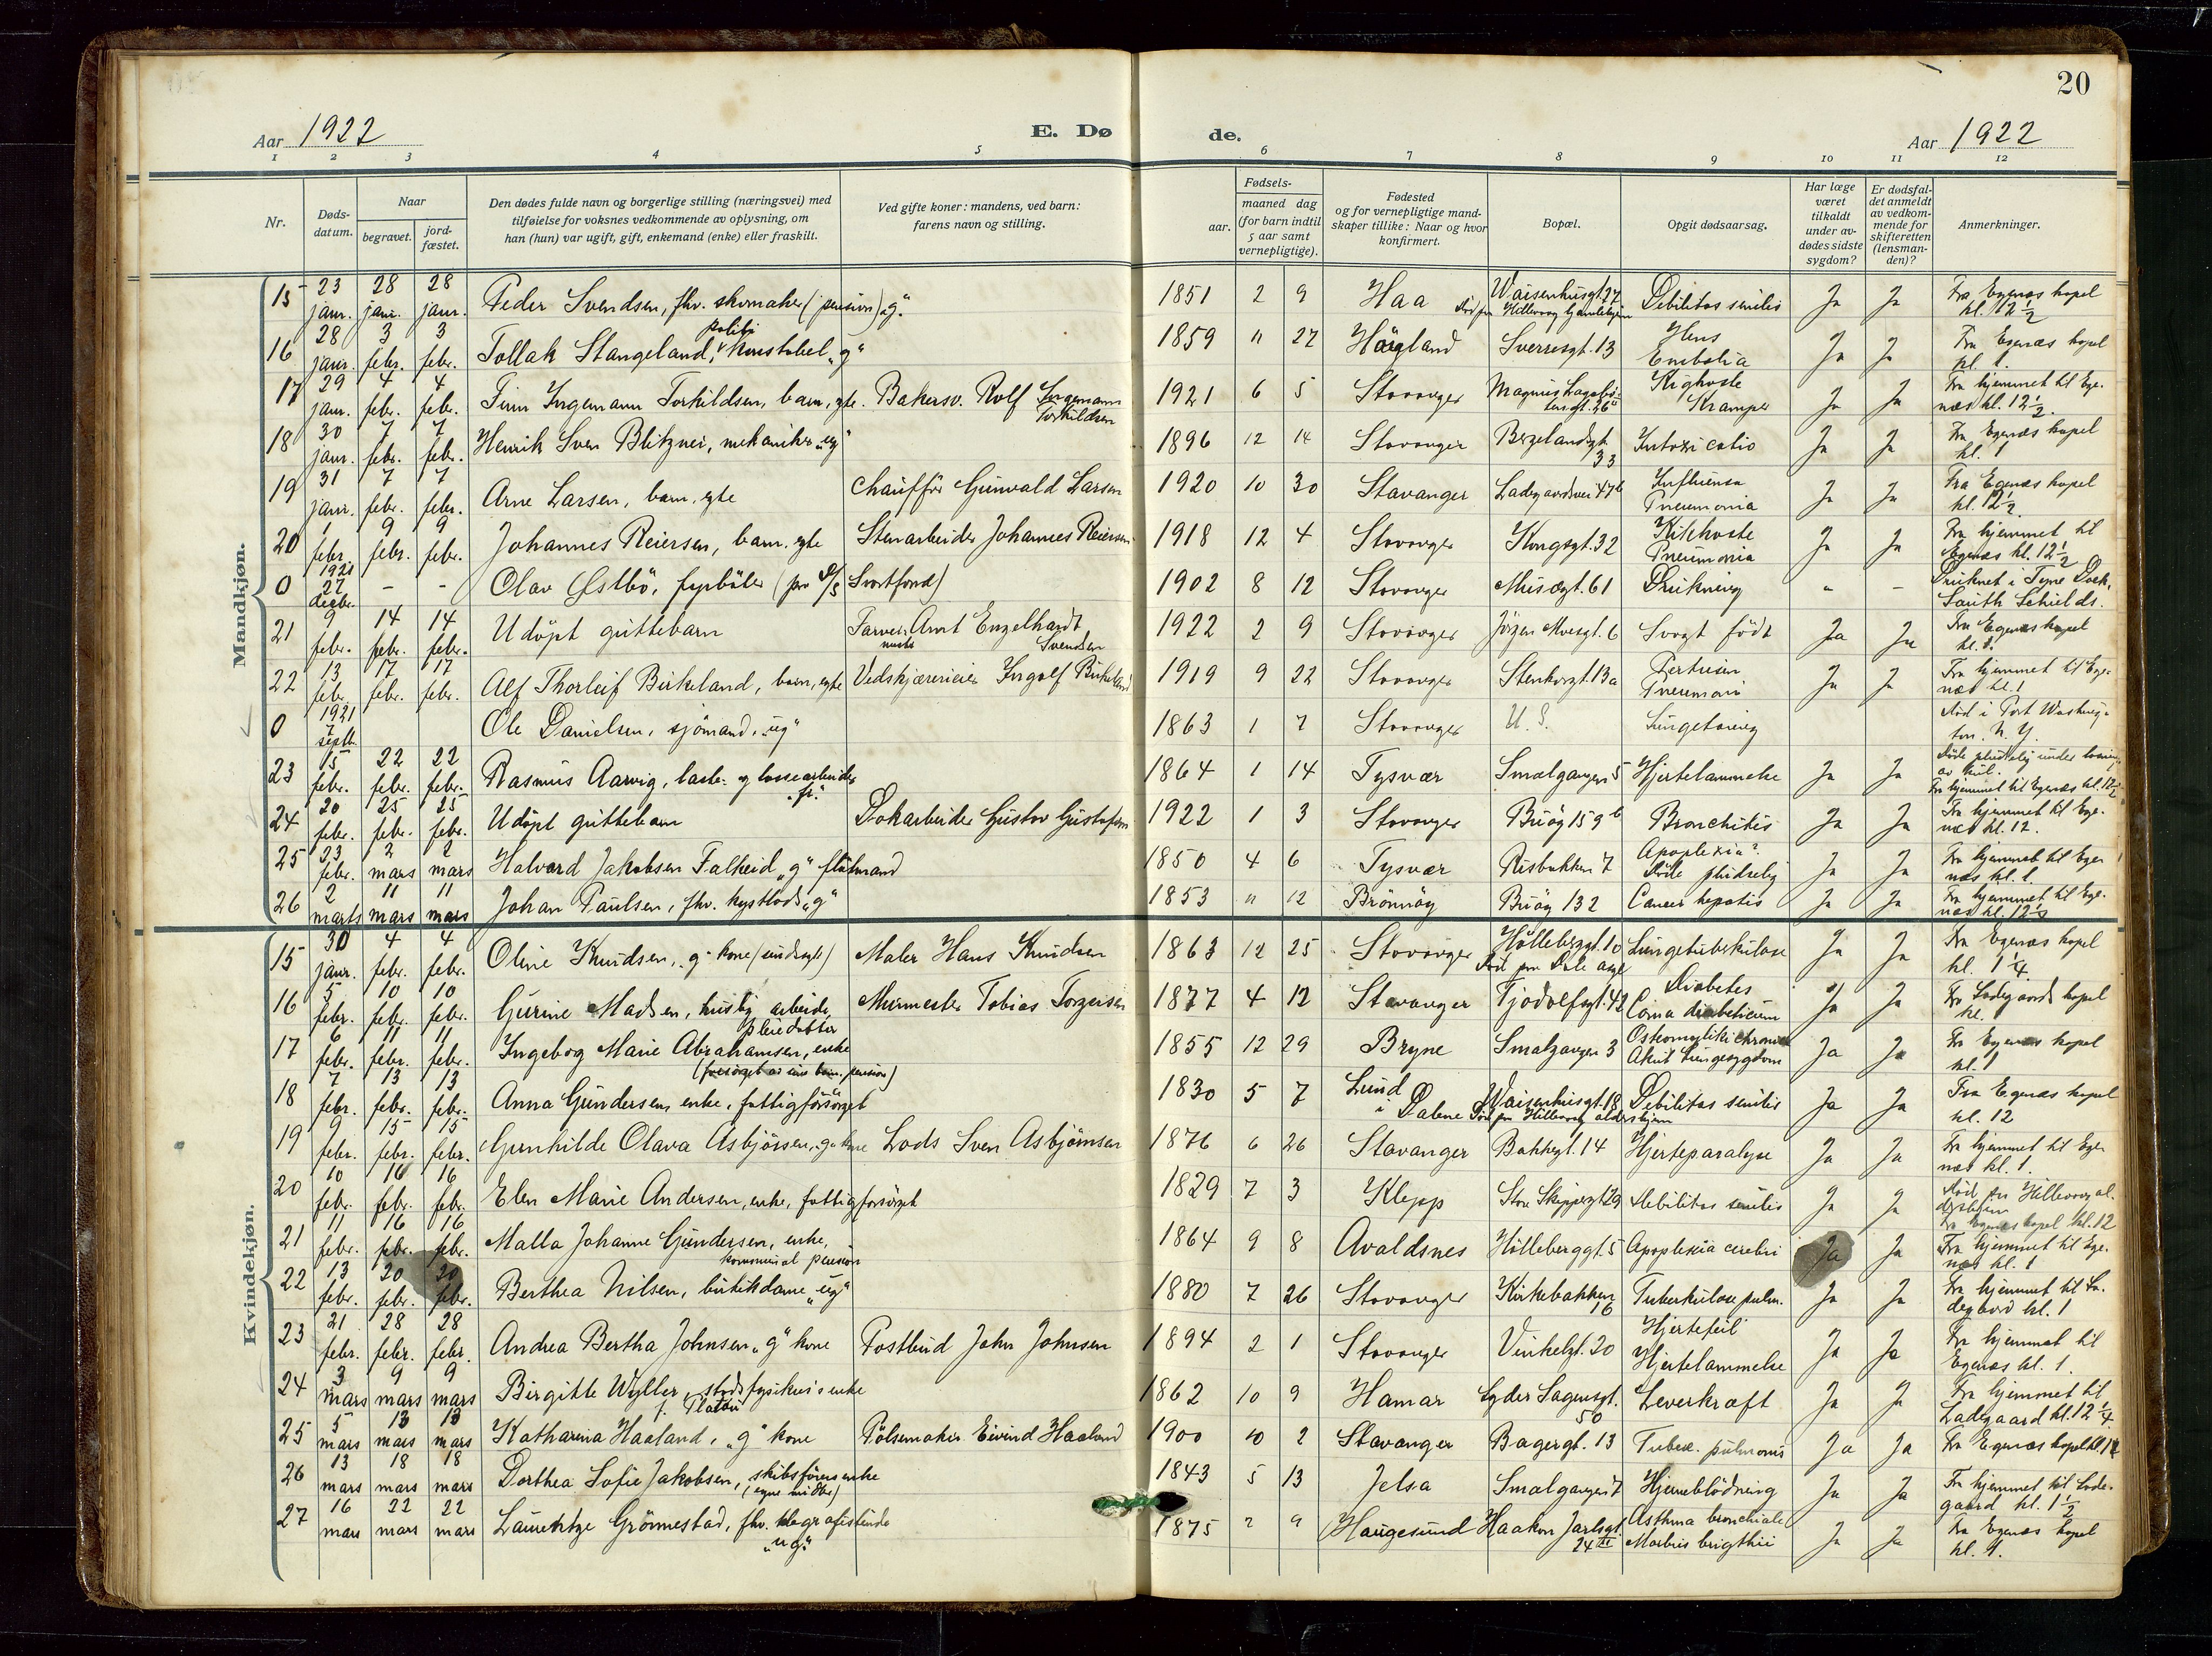 20
Aar 1922
E. Dø de.
Aar 1922
1 2 3 4 5 6 7 8 9 10 11 12
Nr.
Døds-datum.
Naar
begravet.
jord-fæstet.
Den dødes fulde navn og borgerlige stilling (næringsvei) med
tilføielse for voksnes vedkommende av oplysning, om
han (hun) var ugift, gift, enkemand (enke) eller fraskilt.
Ved gifte koner: mandens, ved barn:
farens navn og stilling.
Fødsels-
aar. maaned dag
(for barn indtil
5 aar samt
vernepligtige).
Fødested
og for vernepligtige mand-
skaper tillike: Naar og hvor
konfirmert.
Bopæl.
Opgit dødsaarsag.
Har læge
været
tilkaldt
under av-
dødes sidste
sygdom?
Er dødsfal-
det anmeldt
av vedkom-
mende for
skifteretten
(lensman-
den)?
Anmerkninger.
Mandkjøn.
15 23 janr. 28 janr. 28 janr. Peder Svendsen, fhv. skomaker (pension) „g" 1851 2 9 Haa Waisenhusgt. 27 Død paa Hillevaag Debilitas senilis Ja Ja Fra Egenæs kapel kl. 12 1/2
16 28 janr. 3 febr. 3 febr. Tollak Stangeland, politikonstabel „g" 1859 11 27 Sverresgt. 13 Embolia Ja Ja Fra Egenæs kapel kl. 1.
17 29 janr. 4 febr. 4 febr. Finn Ingemann Torkildsen, barn, egte. Bakersv. Rolf Ingemann Torkildsen 1921 6 5 Stavanger Kighoste Kramper Ja Ja Fra hjemmet til Egenæs kl. 12 1/2.
18 30 janr. 7 febr. 7 febr. Henrik Sven Blitzner, mekaniker „ug" 1896 12 14 Stavanger Bergelandsgt. 33 Intoxicatio Ja Ja Fra Egenæs kapel kl. 1
19 31 janr. 7 febr. 7 febr. Arne Larsen, barn, egte Chauffør Gunvald Larsen 1920 10 30 Stavanger Ladegaardsvei 47b Influensa Pneumonia Ja Ja Fra Egenæs kapel kl. 12 1/2.
20 1 febr. 9 febr. 9 febr. Johannes Reiersen, barn, egte Stenarbeider Johannes Reiersen 1918 12 4 Stavanger Kongsgt. 32 Kikhoste Pneumonia Ja Ja Fra hjemmet til Egenæs kl. 12 1/2
0 1921 27 decbr. - - Olav Østbö, fyrböter (paa D/S Svartfond) 1902 8 12 Stavanger Musægt. 61 Drukning " - Druknet i Tyne Dock, South Schields.
21 9 febr. 14 febr. 14 febr. Udöpt guttebarn Arnt Engelhardt Svendsen 1922 2 9 Stavanger Jörgen Moesgt. 6 Svagt födt Ja Ja Fra Egenæs kapel kl. 1.
22 13 febr. 17 febr. 17 febr. Alf Thorleif Birkeland, barn, egte Vedskjærereier Ingolf Birkeland 1919 9 22 Stavanger Stenkargt. 13a Pneumoni Ja Ja Fra hjemmet til Egenæs kl. 1
0 1921 7 septb. Ole Danielsen, sjömand, „ug" 1863 1 7 Stavanger U. S. Död i Port Washington. N. Y.
23 15 febr. 22 febr. 22 febr. Rasmus Aarvig, laste- og lossearbeider 1864 1 14 Tysvær Smalgangen 5 Hjertelammelse Ja Ja Döde pludselig under losning av kul. Fra hjemmet til Egenæs kl. 12 1/2
24 20 febr. 25 febr. 25 febr. Udöpt guttebarn Dokarbeider Gustav Gustafsen 1922 1 3 Stavanger Buöy 159b Bronchitis Ja Ja Fra hjemmet til Egenæs kl. 12.
25 23 febr. 2 mars 2 mars Halvard Jakobsen Falkeid „g" 1850 4 6 Tysvær Risbakken 7 Apoplexia? Döde pludselig Ja Ja Fra hjemmet til Egenæs kl. 1
26 2 marts 11 mars 11 mars Johan Paulsen, fhv. kystlods „g" 1853 11 12 Brönnöy Buöy 132 Cancer hepatis Ja Ja Fra hjemmet til Egenæs kl. 12 1/2
Kvindekjøn.
15 30 janr. 4 febr. 4 febr. Oline Knudsen, „g" kone Maler Hans Knudsen 1863 12 25 Stavanger Hölleberggt. 10 Lungetuberkulose Ja Ja Fra Egenæs kapel kl. 1 1/4.
16 5 febr. 10 febr. 10 febr. Gurine Madsen, huslig arbeide, pleiedatter Murmester Tobias Torgersen 1877 4 12 Stavanger Tjodolfsgt. 42 Diabetes Coma diabeticum Ja Ja Fra Ladegaards kapel kl. 1
17 6 febr. 11 febr. 11 febr. Ingeborg Marie Abrahamsen, enke (forsörget av sine barn, pension) 1855 12 29 Bryne Smalgangen 3 Akut Lungesygdom Ja Ja Fra Egenæs kapel kl. 1
18 7 febr. 13 febr. 13 febr. Anna Gundersen, enke, fattigforsörget 1830 5 7 Lund i Dalene Waisenhusgt. 18 Död paa Hillevaag aldershjem Debilitas senilis Ja Ja Fra Egenæs kapel kl. 12
19 9 febr. 15 febr. 15 febr. Gunhilde Olava Asbjörsen, „g" kone Lods Sven Asbjörnsen 1876 6 26 Stavanger Bakkegt. 14 Hjerteparalyse Ja Ja Fra hjemmet til Egenæs kl. 1.
20 10 febr. 16 febr. 16 febr. Elen Marie Andersen, enke, fattigforsörget 1829 7 3 Klepp Store Skippergt. 29 Debilitas senilis Ja Ja Död paa Hillevaag aldershjem Fra Egenæs kapel kl. 12
21 11 febr. 16 febr. 16 febr. Malla Johanne Gundersen, enke, kommunal pension 1864 9 8 Avaldsnes Hölleberggt. 5 Apoplexia cerebri Ja Ja Fra hjemmet til Egenæs kl. 1
22 13 febr. 20 febr. 20 febr. Berthea Nilsen, butikdame „ug" 1880 7 26 Stavanger Kirkebakken 16 Tuberkulose pulm. Ja Ja Fra hjemmet til kl. 1
23 21 febr. 28 febr. 28 febr. Andrea Bertha Johnsen „g" kone Postbud John Johnsen 1894 2 1 Stavanger Vinkelgt. 20 Hjertefeil Hjertelammelse Ja Ja Fra hjemmet til Egenæs kl. 1.
24 3 mars 9 mars 9 mars Birgitte Wyller, stadsfysikus's enke f. Platou 1862 10 9 Hamar Lyder Sagensgt. 50 Leverkræft Ja Ja Fra hjemmet til Ladegaard kl. 12 1/4
25 5 mars 13 mars 13 mars Katharina Haaland, „g" kone Pölsemaker Eivind Haaland 1900 10 2 Stavanger Bagergt. 13 Tuberc. pulmonis Ja Ja Fra Egenæs kapel kl. 12
26 13 mars 18 mars 18 mars Dorthea Sofie Jakobsen, skibsförers enke (egne midler) 1843 5 13 Jelsa Smalgangen 7 Hjerneblödning Ja Ja Fra hjemmet til Ladegaard kl. 1 1/2
27 16 mars 22 mars 22 mars Laurentze Grönnestad, fhv. telegrafistinde „ug" 1875 2 9 Haugesund Haakon Jarlsgt. 24 III Asthma bronchiale Morbus brigthii Ja Ja Fra Egenæs kapel kl. 1.